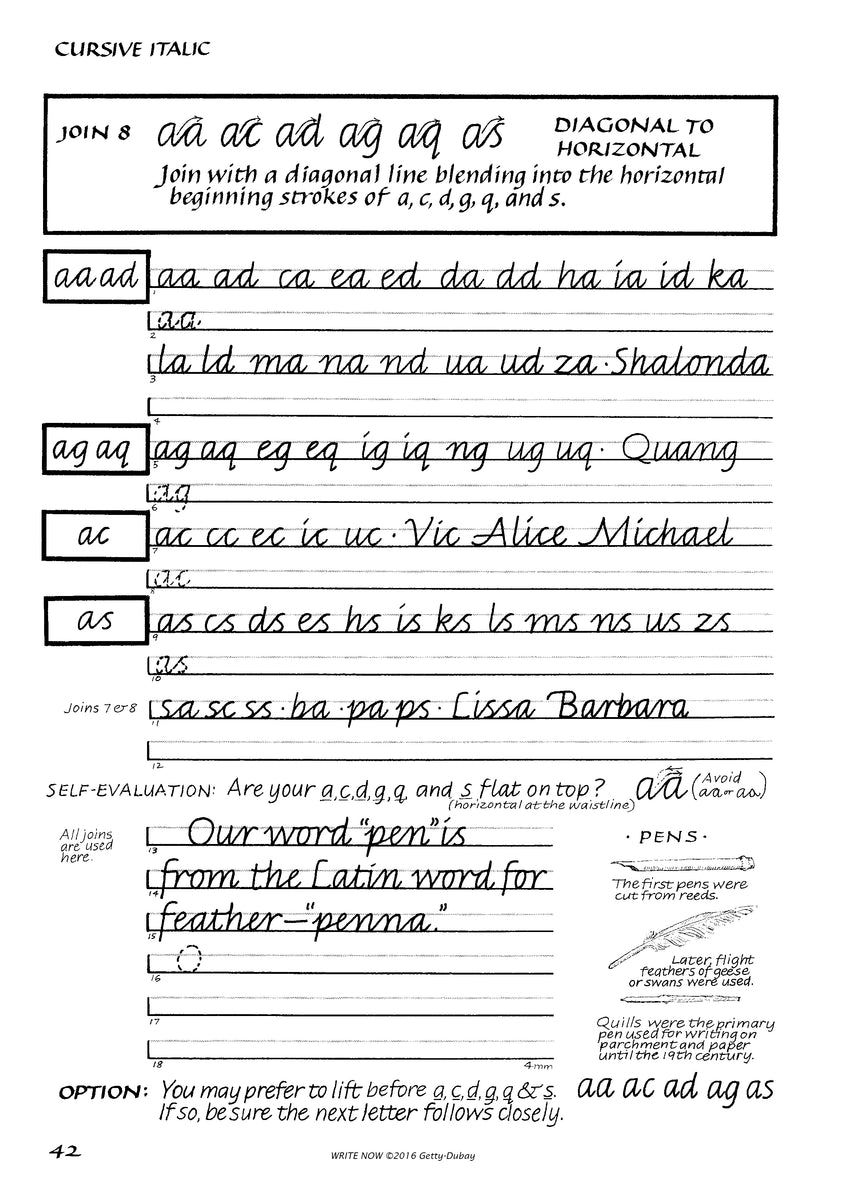 CURSIVE ITALIC
JOIN 8 aa ac ad ag aq as DIAGONAL TO
HORIZONTAL
Join with a diagonal line blending into the horizontal
beginning strokes of a, c, d, g, q, and s.
aa ad aa ad ca ea ed da dd ha ia id ka
1
aa
2
la ld ma na nd ua ud za · Shalonda
3
4
ag aq ag aq eg eq ig iq ng ug uq · Quang
5
ag
6
ac ac cc ec ic uc · Vic Alice Michael
7
ac
8
as as cs ds es hs is ks ls ms ns us zs
9
as
10
Joins 7 & 8 sa sc ss · ba · pa ps · Lissa Barbara
11
12
SELF-EVALUATION: Are your a, c, d, g, q, and s flat on top? aa (Avoid
aa or aa)
(horizontal at the waistline)
All joins
are used
here.
Our word “pen” is
13
from the Latin word for
14
feather—“penna.”
15
O
16
17
18
4mm
· PENS ·
The first pens were
cut from reeds.
Later, flight
feathers of geese
or swans were used.
Quills were the primary
pen used for writing on
parchment and paper
until the 19th century.
OPTION: You may prefer to lift before a, c, d, g, q & s. aa ac ad ag as
If so, be sure the next letter follows closely.
42 WRITE NOW ©2016 Getty-Dubay